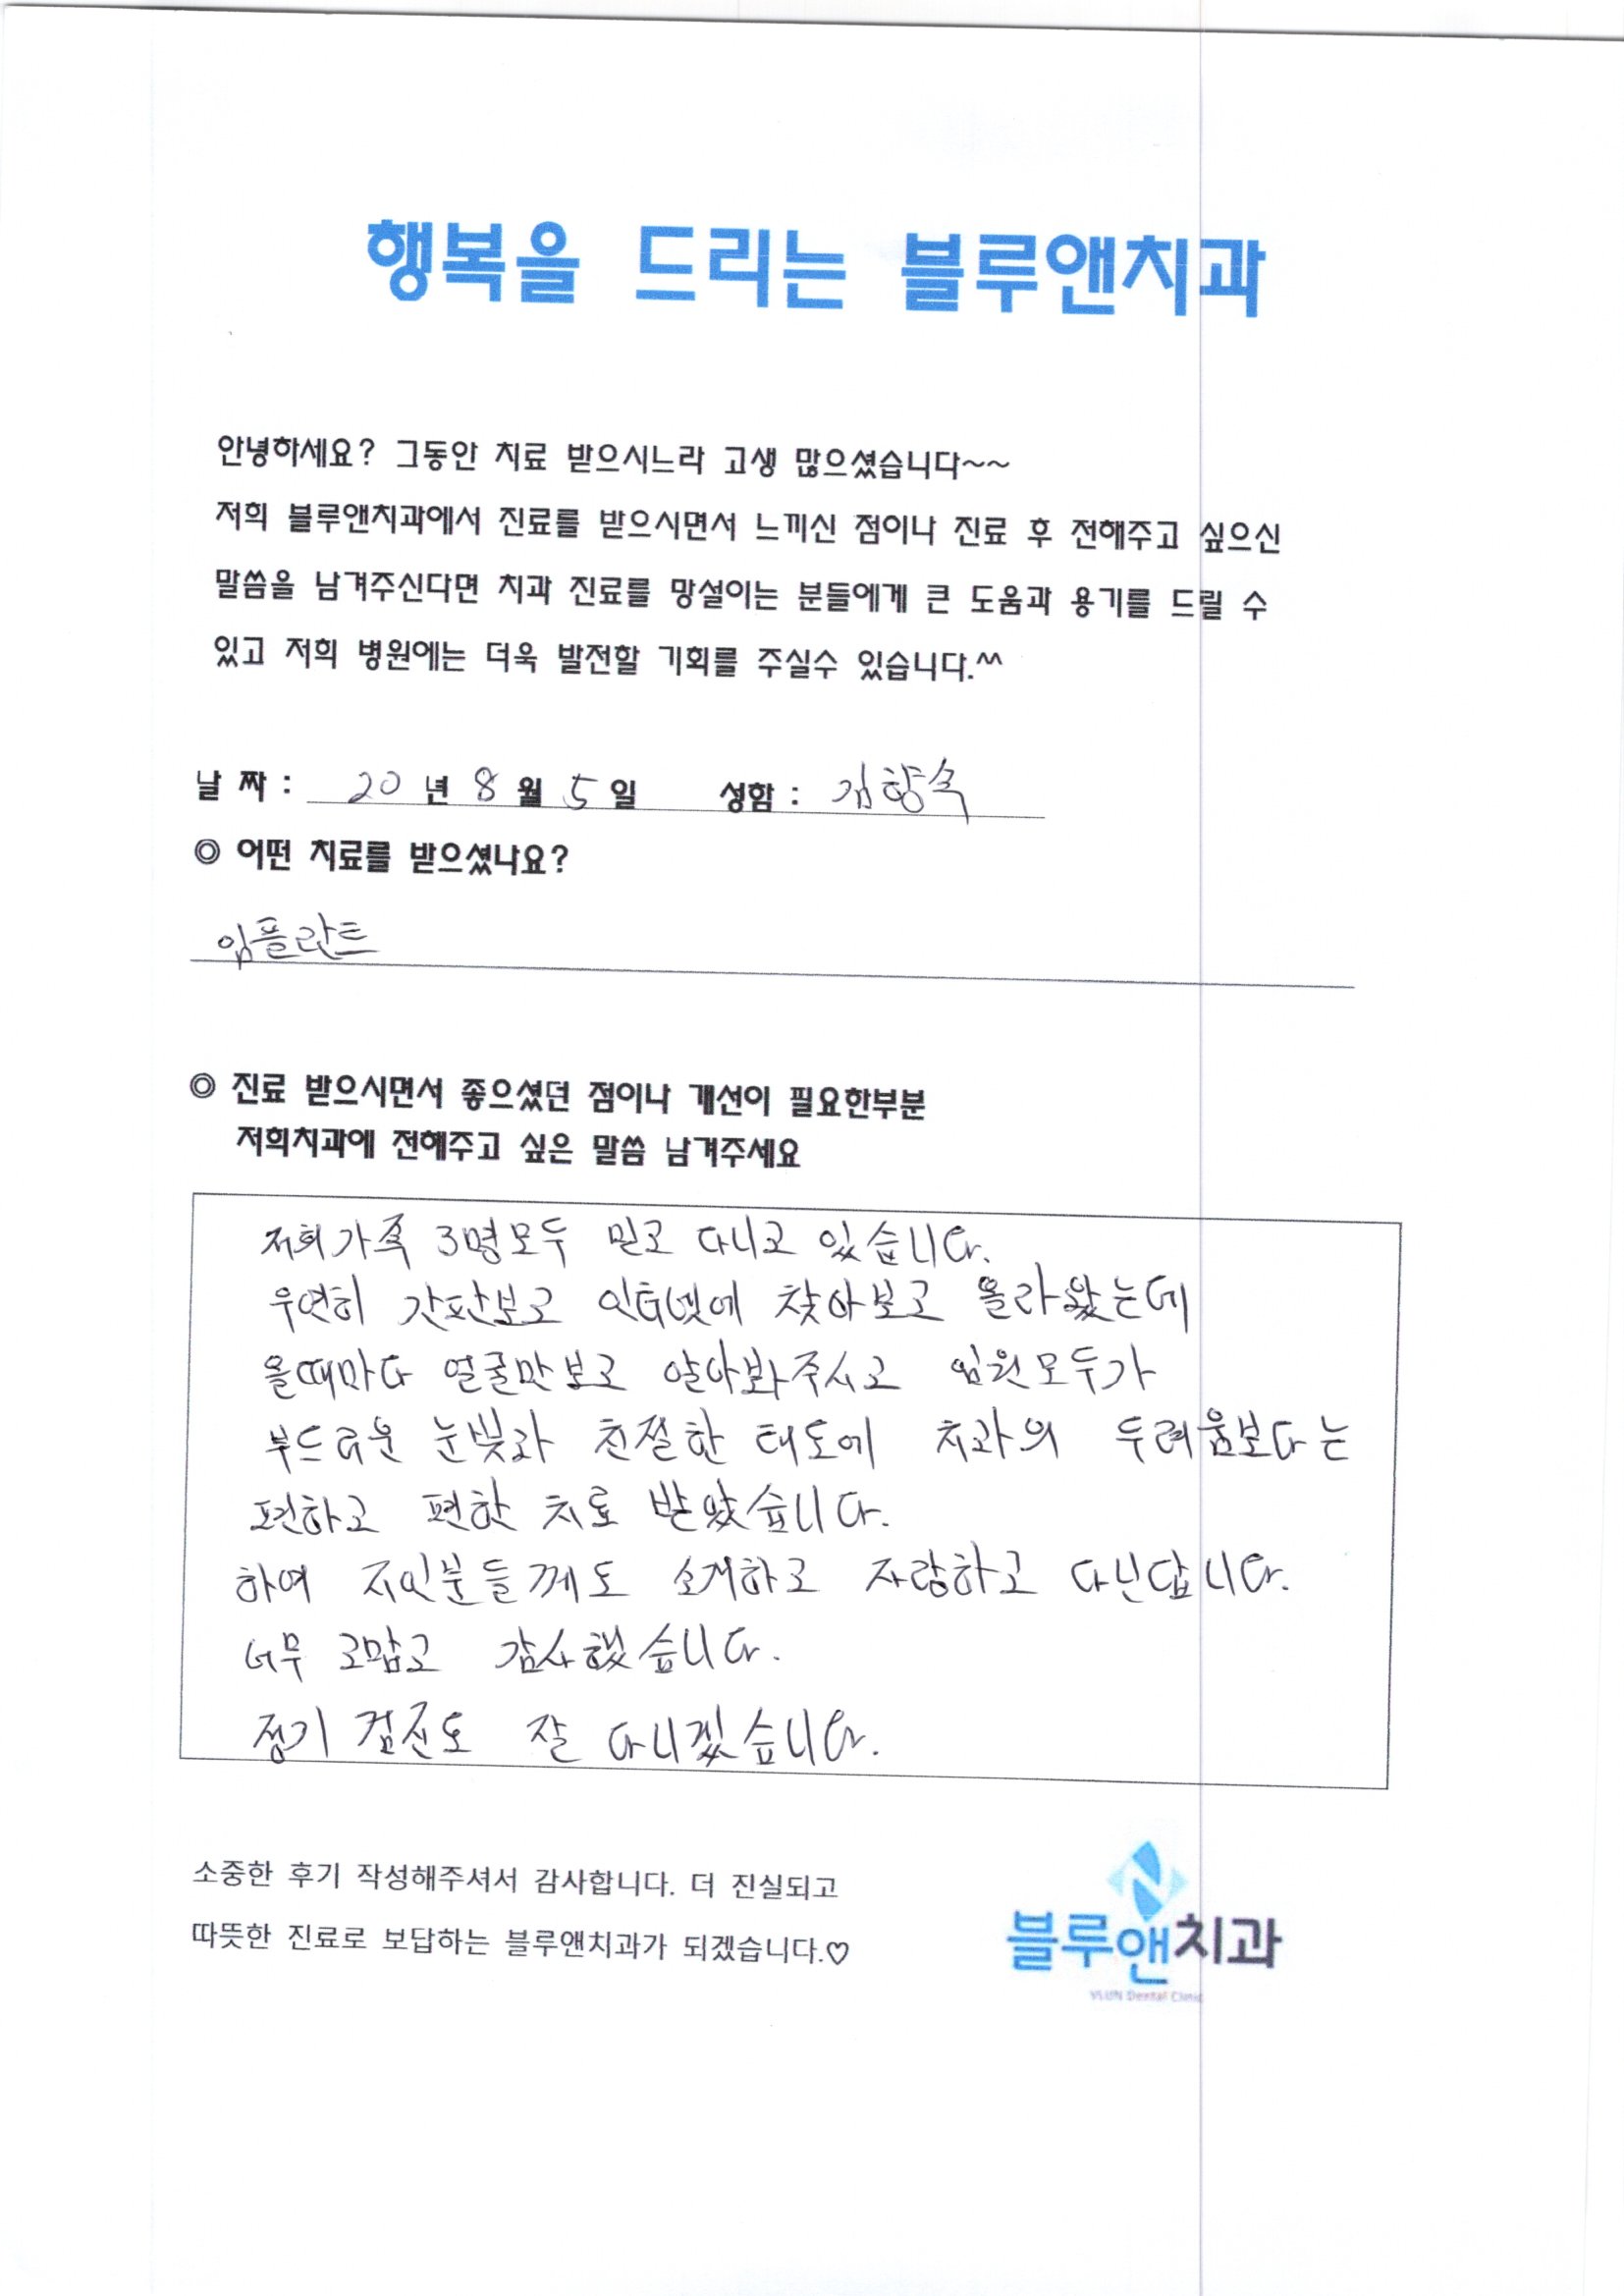 행복을 드리는 블루앤치과
안녕하세요? 그동안 치료 받으시느라 고생 많으셨습니다~~
저희 블루앤치과에서 진료를 받으시면서 느끼신 점이나 진료 후 전해주고 싶으신
말씀을 남겨주신다면 치과 진료를 망설이는 분들에게 큰 도움과 용기를 드릴 수
있고 저희 병원에는 더욱 발전할 기회를 주실수 있습니다.^^
날 짜 : 20 년 8 월 5 일 성함 : 김향숙
◎ 어떤 치료를 받으셨나요?
임플란트
◎ 진료 받으시면서 좋으셨던 점이나 개선이 필요한부분
저희치과에 전해주고 싶은 말씀 남겨주세요
저희가족 3명모두 믿고 다니고 있습니다.
우연히 간판보고 인터넷에 찾아보고 올라왔는데
올때마다 얼굴만보고 알아봐주시고 임원모두가
부드러운 눈빛과 친절한 태도에 치과의 두려움보다는
편하고 편한 치료 받았습니다.
하여 지인분들께도 소개하고 자랑하고 다닌답니다.
너무 고맙고 감사했습니다.
정기 검진도 잘 다니겠습니다.
소중한 후기 작성해주셔서 감사합니다. 더 진실되고
따뜻한 진료로 보답하는 블루앤치과가 되겠습니다.♡
블루앤치과
VLUN Dental Clinic